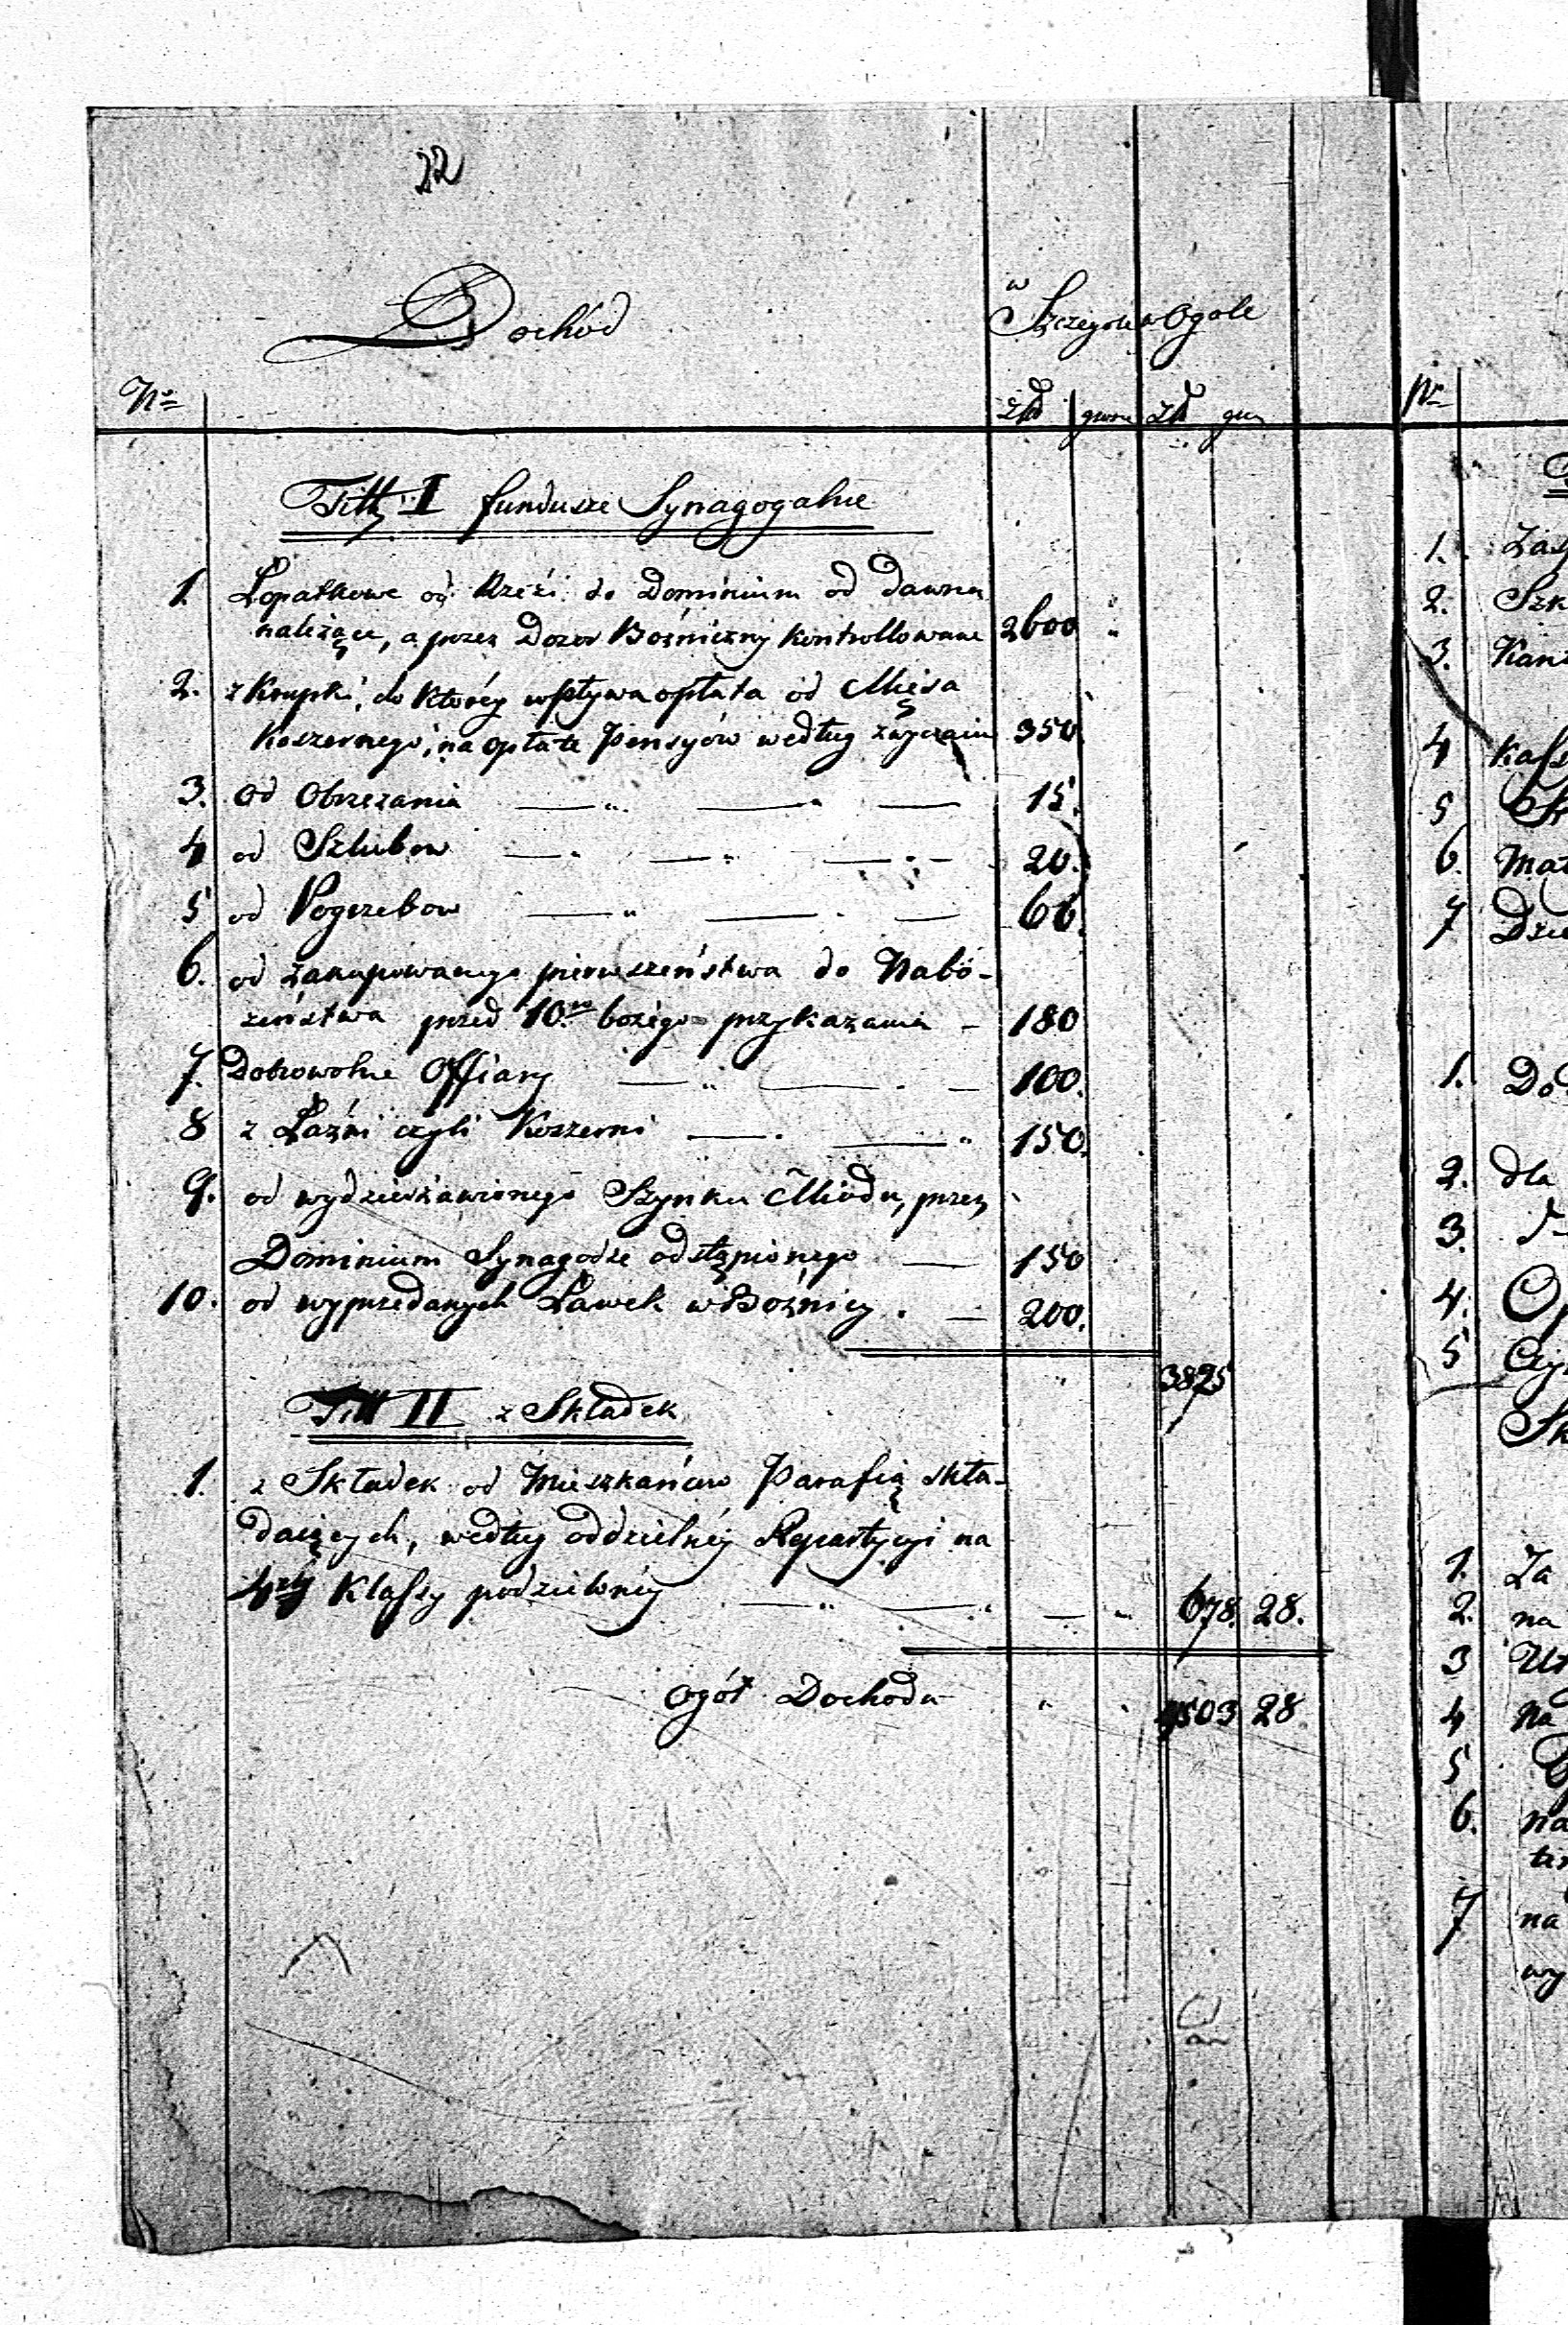 22
Dochód
w Szczegole w Ogole
Nº
złł grosze złł grz
Titt I fundusze Synagogalne
1. Łopatkowe od Rzézi do Dominium od dawna
należące, a przez Dozor Bożniczny kontrollowane 2600 "
2. z Krupki, do którey wpływa opłata od Mięsa
Koszernego, na opłatę Pensyów według zwyczaiu 350.
3. od Obrzezania — " — " — 15.
4 od Szlubow — " — " — " — 20.
5 od Pogrzebow — " — . — 60.
6. od zakupowanego pierwszeństwa do Nabo-
żeństwa przed 10.ro bożego przykazania — 180
7. Dobrowolne Offiary — " — . — 100.
8 z Łaźni czyli Koszerni — . — " 150.
9. od wydzierżawionego Szynku Miodu, przez
Dominium Synagodze odstąpionego — 150
10. od wyprzedanych Ławek w Bożnicy . — 200.
" 3825
Titt II z Składek
1. z Składek od Mieszkańców Parafią skła-
daiących, według oddzielnéy Repartycyi na
4ry Klassy podzielonéy — " — " — " 678. 28.
Ogół Dochodu " " 4503 28
Nº
1.
2. Szk
3. Kan
4
5
6. Mat
7
1. Do
2. dla
3.
4. Op
5
Sk
1. Za
2. na
3
4 Na
5
6. na
7 na
wy